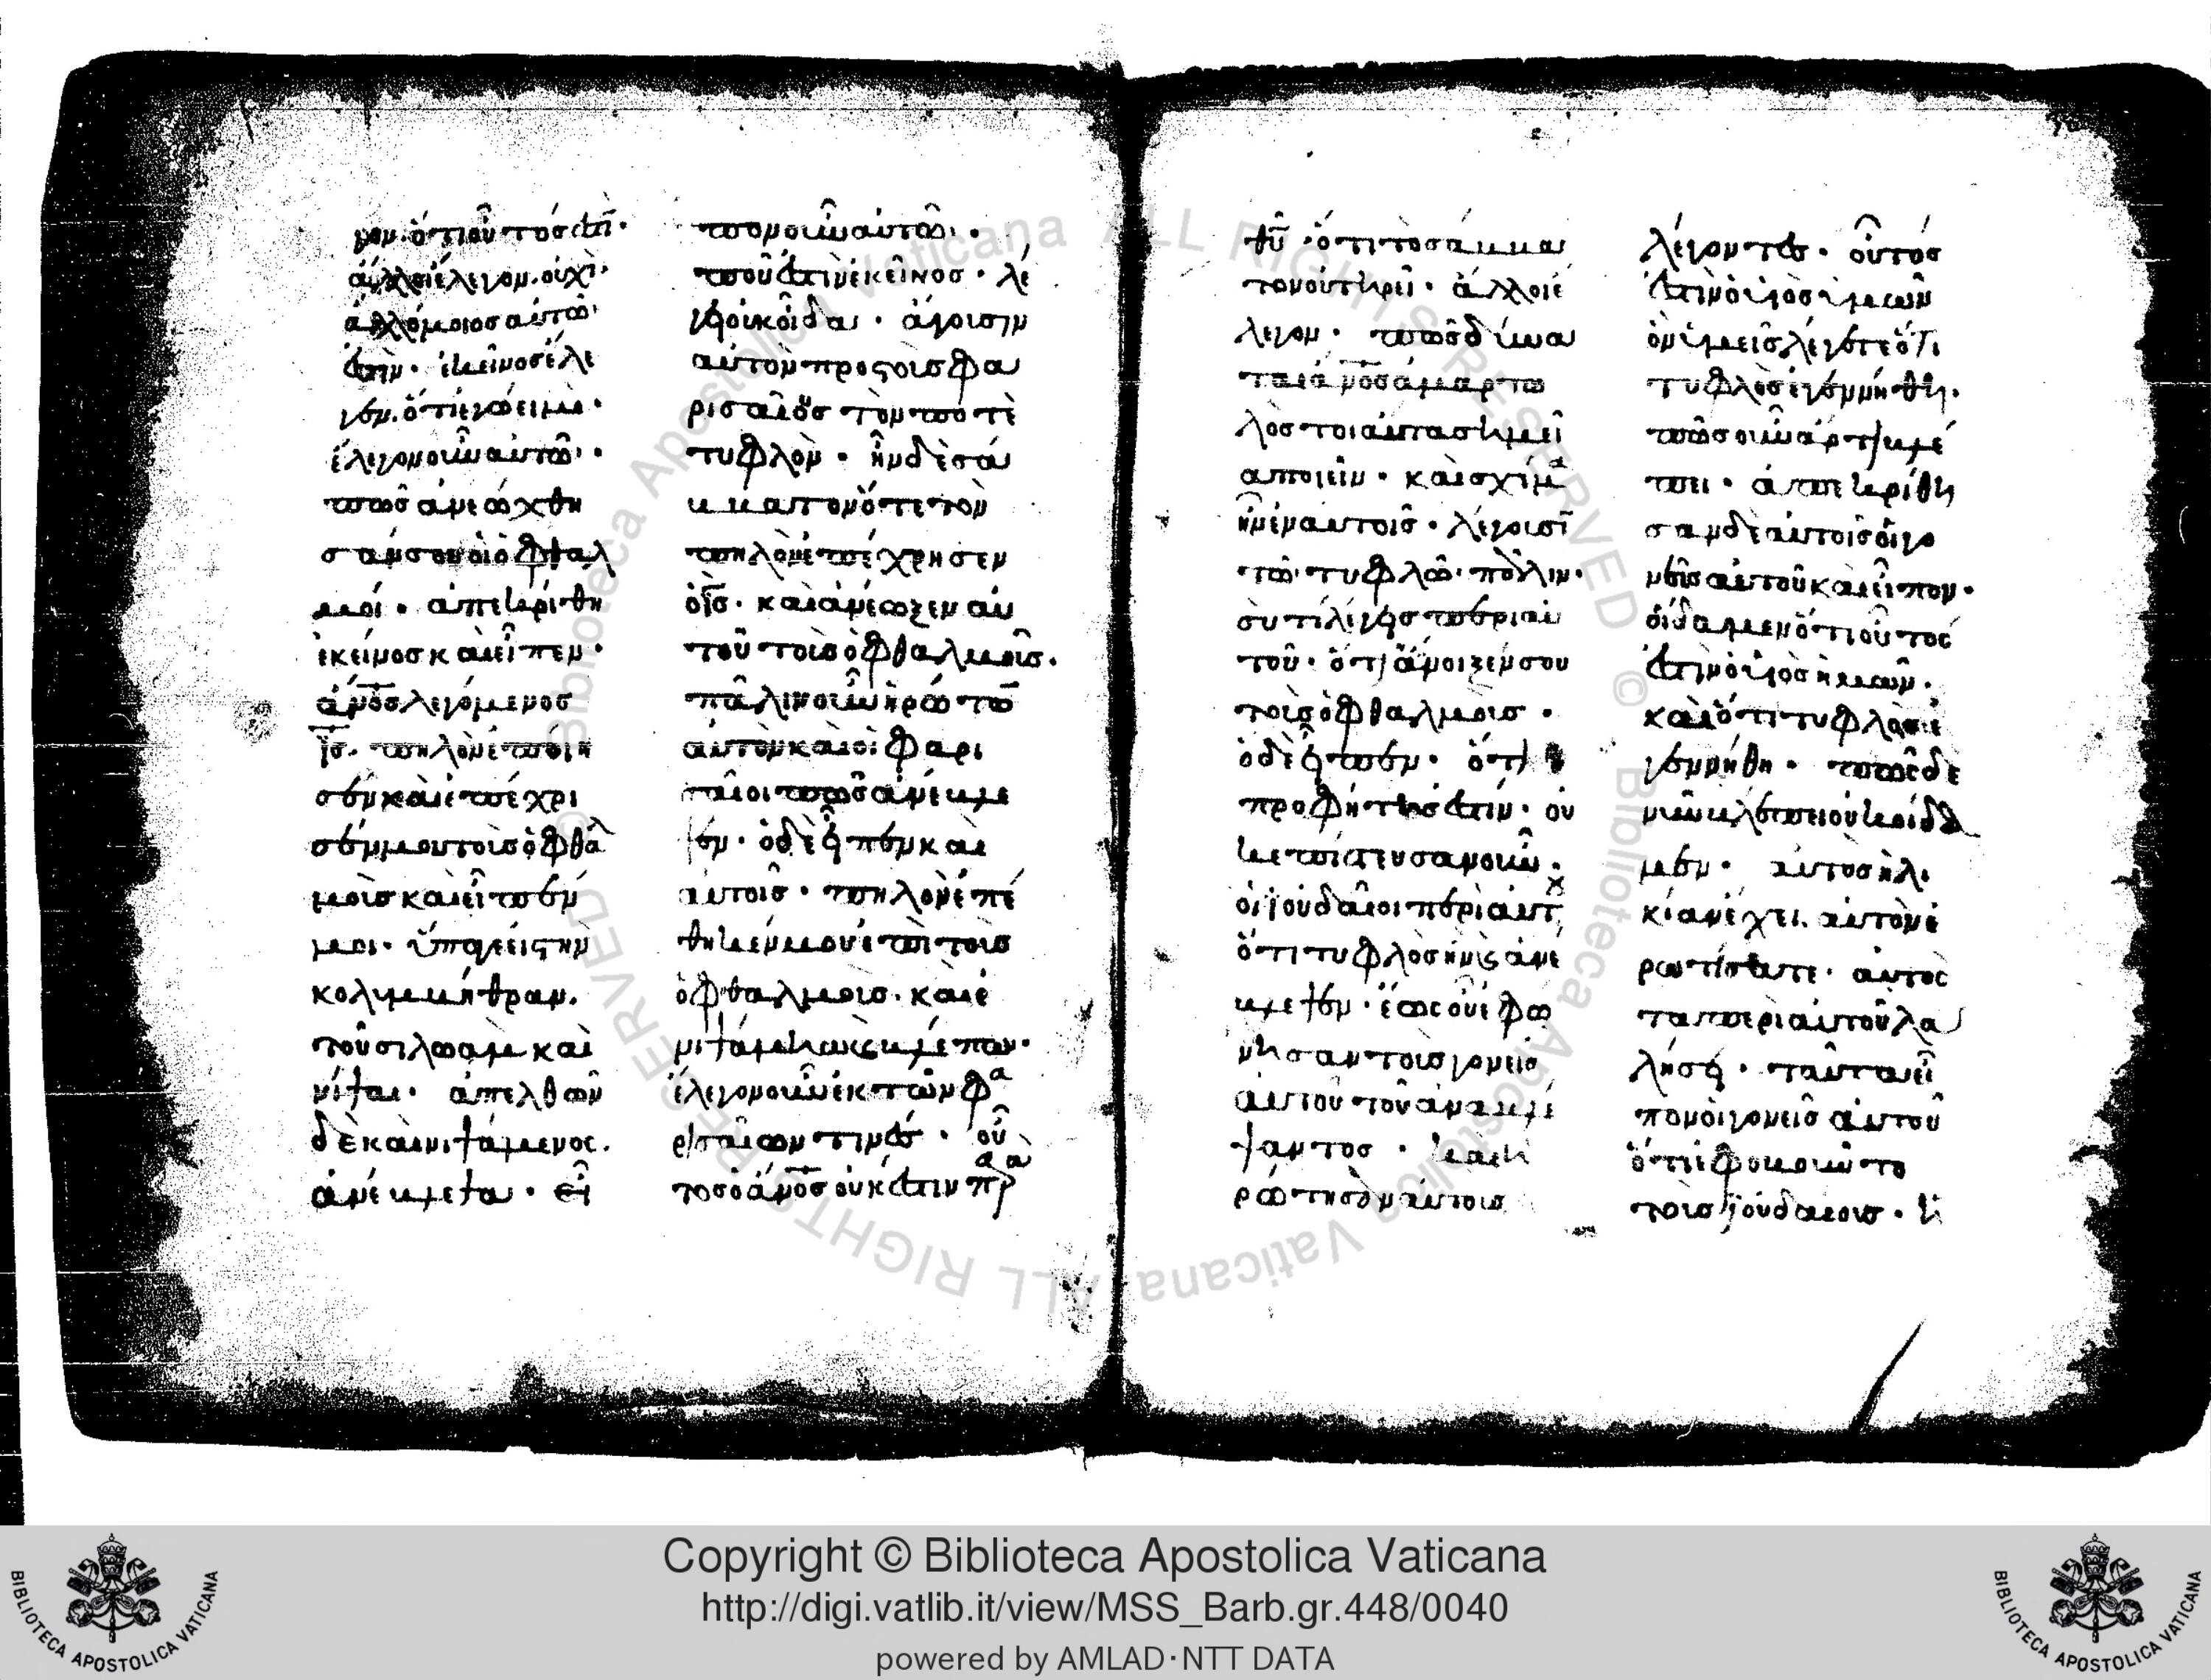 γον· ὅτι οὗτός ἐστι·
ἄλλοι ἔλεγον· οὐχὶ·
ἀλλ ὅμοιος αὐτῶ
ἐστὶν· ἐκεῖνος ἔλε
γεν· ὅτι ἐγώ εἰμι·
ἔλεγον οὖν αὐτῶ·
πῶς ἀνεώχθη
σάν σου οἱ ὀφθαλ
μοί· ἀπεκρίθη
ἐκεῖνος καὶ εἶπεν·
ἄνος λεγόμενος
ἰς· πηλὸν ἐποίη
σεν καὶ ἐπέχρι
σέν μου τοὺς ὀφθαλ
μοὺς καὶ εἶπέν
μοι· ὕπαγε εἰς τὴν
κολυμβήθραν
τοῦ σιλωὰμ καὶ
νίψαι· ἀπελθὼν
δὲ καὶ νιψάμενος·
ἀνέβλεψα· εἶ
πον οὖν αὐτῶ·
ποῦ ἐστὶν ἐκεῖνος· λέ
γει οὐκ οἶδα· ἄγουσιν
αὐτὸν πρὸς τοὺς φα
ρισαίους τὸν ποτὲ
τυφλόν· ἦν δὲ σά
ββατον ὅτε τὸν
πηλὸν ἐπέχρησεν
ὁ ἰς· καὶ ἀνέωξεν αὐ
τοῦ τοὺς ὀφθαλμούς·
πάλιν οὖν ἠρώτων
αὐτὸν καὶ οἱ φαρι
σαῖοι πῶς ἀνέβλε
ψεν· ὁ δὲ εἶπεν καὶ
αὐτοῖς· πηλὸν ἐπέ
θηκέν μου ἐπὶ τοὺς
ὀφθαλμούς· καὶ ἐ
νιψάμην καὶ βλέπω·
ἔλεγον οὖν ἐκ τῶν φα
ρισαίων τινές· οὗ
τος ὁ ἄνος οὐκ ἔστιν παρὰ
θῦ· ὅτι τὸ σάββα
τον οὐ τηρεῖ· ἄλλοι ἔ
λεγον· πῶς δύνα
ται ἄνος ἁμαρτω
λὸς τοιαῦτα σημεῖ
α ποιεῖν· καὶ σχίσμα
ἦν ἐν αὐτοῖς· λέγουσι
τῶ τυφλῶ πάλιν·
σὺ τί λέγεις περὶ αὐ
τοῦ· ὅτι ἄνοιξέν σου
τοὺς ὀφθαλμούς·
ὁ δὲ εἶπεν· ὅτι
προφήτης ἐστίν· οὐ
κ ἐπίστευσαν οὖν
οἱ ἰουδαῖοι περὶ αὐτ
ὅτι τυφλὸς ἦν καὶ ἀνέ
βλεψεν· ἕως οὗ ἐφώ
νησαν τοὺς γονεῖς
αὐτοῦ τοῦ ἀναβλέ
ψαντος· καὶ ἠ
ρώτησαν αὐτοὺς
λέγοντες· οὗτός
ἐστιν ὁ υἱὸς ὑμῶν
ὃν ὑμεῖς λέγετε ὅτι
τυφλὸς ἐγεννήθη·
πῶς οὖν ἄρτι βλέ
πει· ἀπεκρίθη
σαν δὲ αὐτοῖς οἱ γο
νεῖς αὐτοῦ καὶ εἶπον·
οἴδαμεν ὅτι οὗτός
ἐστιν ὁ υἱὸς ἡμῶν·
καὶ ὅτι τυφλὸς ἐ
γεννήθη· πῶς δὲ
νῦν βλέπει οὐκ οἴδα
μεν· αὐτὸς ἡλι
κίαν ἔχει· αὐτὸν ἐ
ρωτήσατε· αὐτὸς
τὰ περὶ αὐτοῦ λα
λήσει· ταῦτα εἶ
πον οἱ γονεῖς αὐτοῦ
ὅτι ἐφοβοῦντο
τοὺς ἰουδαίους·
Copyright © Biblioteca Apostolica Vaticana
http://digi.vatlib.it/view/MSS_Barb.gr.448/0040
powered by AMLAD·NTT DATA
BIBLIOTECA APOSTOLICA VATICANA
BIBLIOTECA APOSTOLICA VATICANA